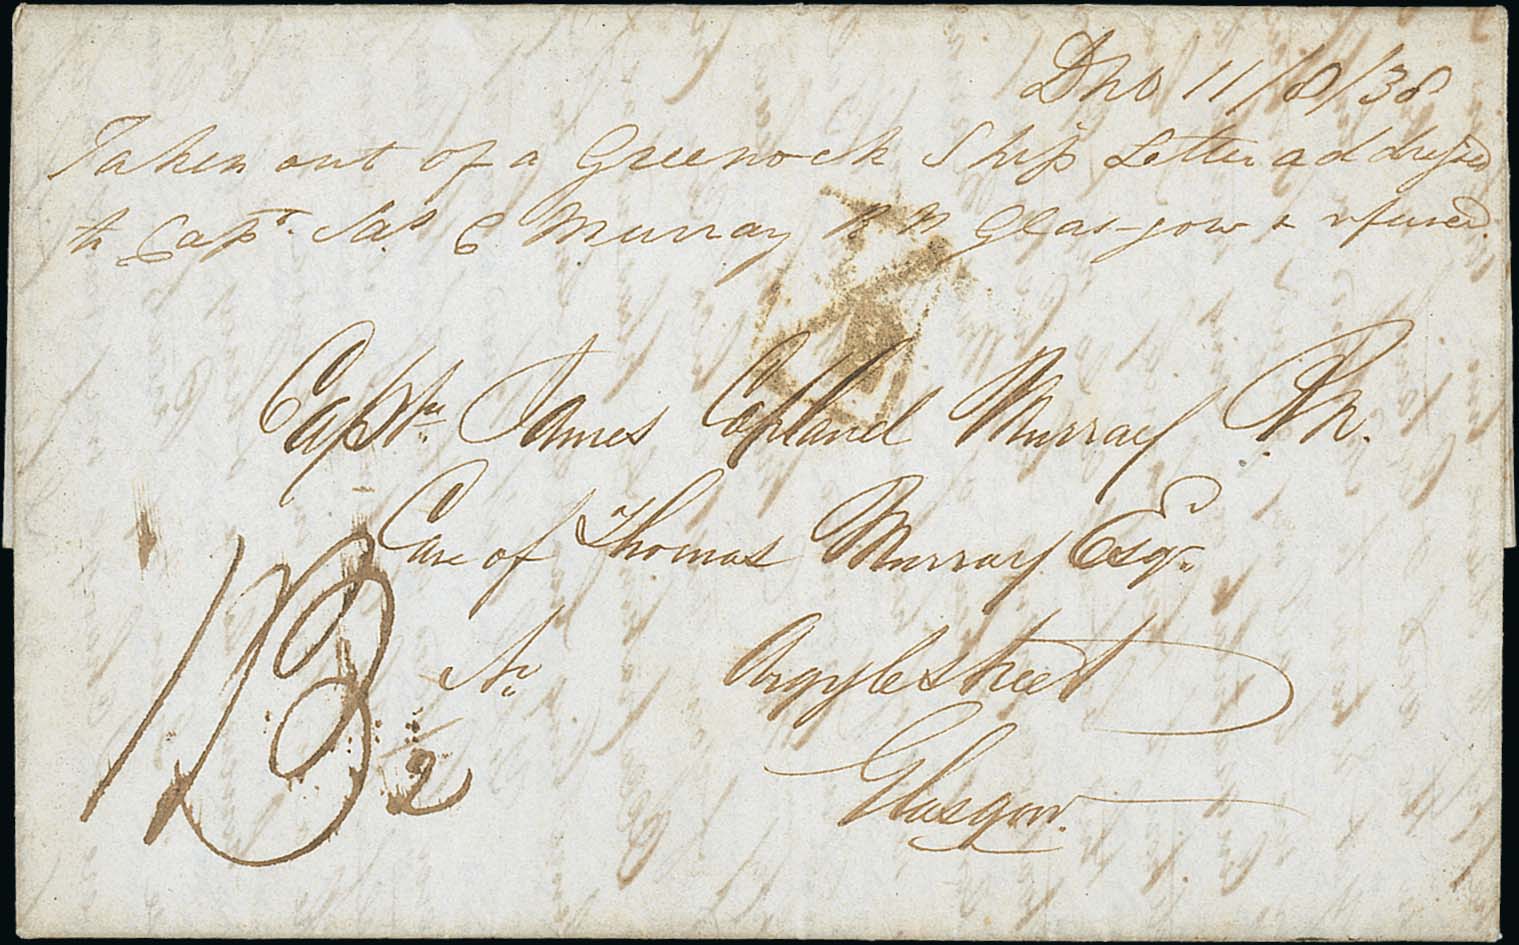 11/8/38
Taken out of a Greenock Ship Letter addressed
to Capt. Jas C Murray R N Glasgow & refused.
Captn. James Copland Murray R.N.
Care of Thomas Murray Esqr.
Argyle Street
Glasgow.
1/2